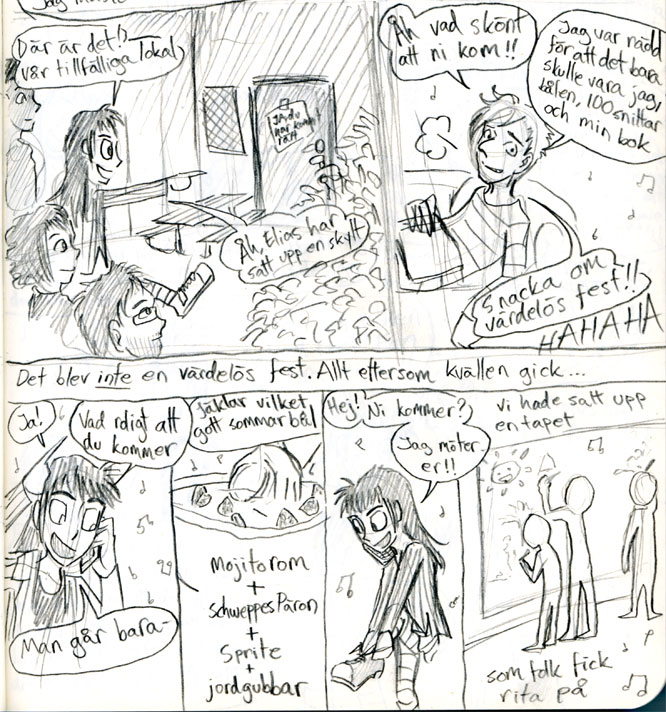 Jag måste
Där är det!
vår tillfälliga lokal
JA, du
har kommit
rätt
Åh, Elias har
satt upp en skylt
Åh vad skönt
att ni kom!!
Jag var rädd
för att det bara
skulle vara jag,
bålen, 100 snittar
och min bok
Snacka om
värdelös fest!!
HAHAHA
Det blev inte en värdelös fest. Allt eftersom kvällen gick...
Ja!
Vad roligt att
du kommer
Man går bara-
Jäklar vilket
gott sommarbål
Mojitorom
+
Schweppes Päron
+
Sprite
+
jordgubbar
Hej! Ni kommer?
Jag möter
er!!
Vi hade satt upp
en tapet
som folk fick
rita på